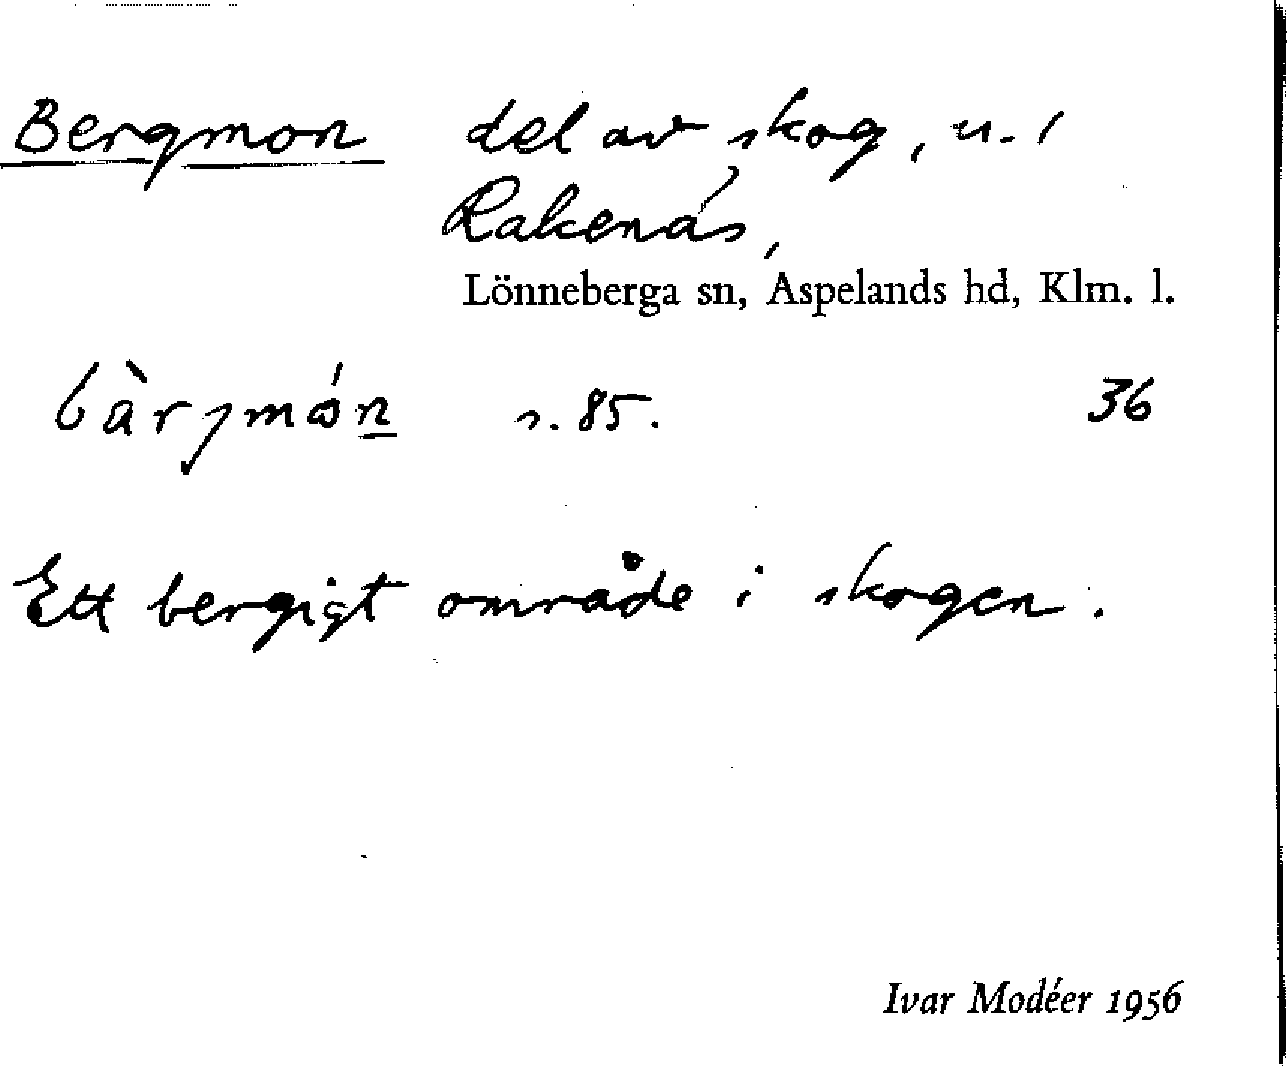 Bergmon del av skog, u. /
Rakenäs,
Lönneberga sn, Aspelands hd, Klm. l.
s. 85. 36
Ett bergigt område i skogen.
Ivar Modéer 1956